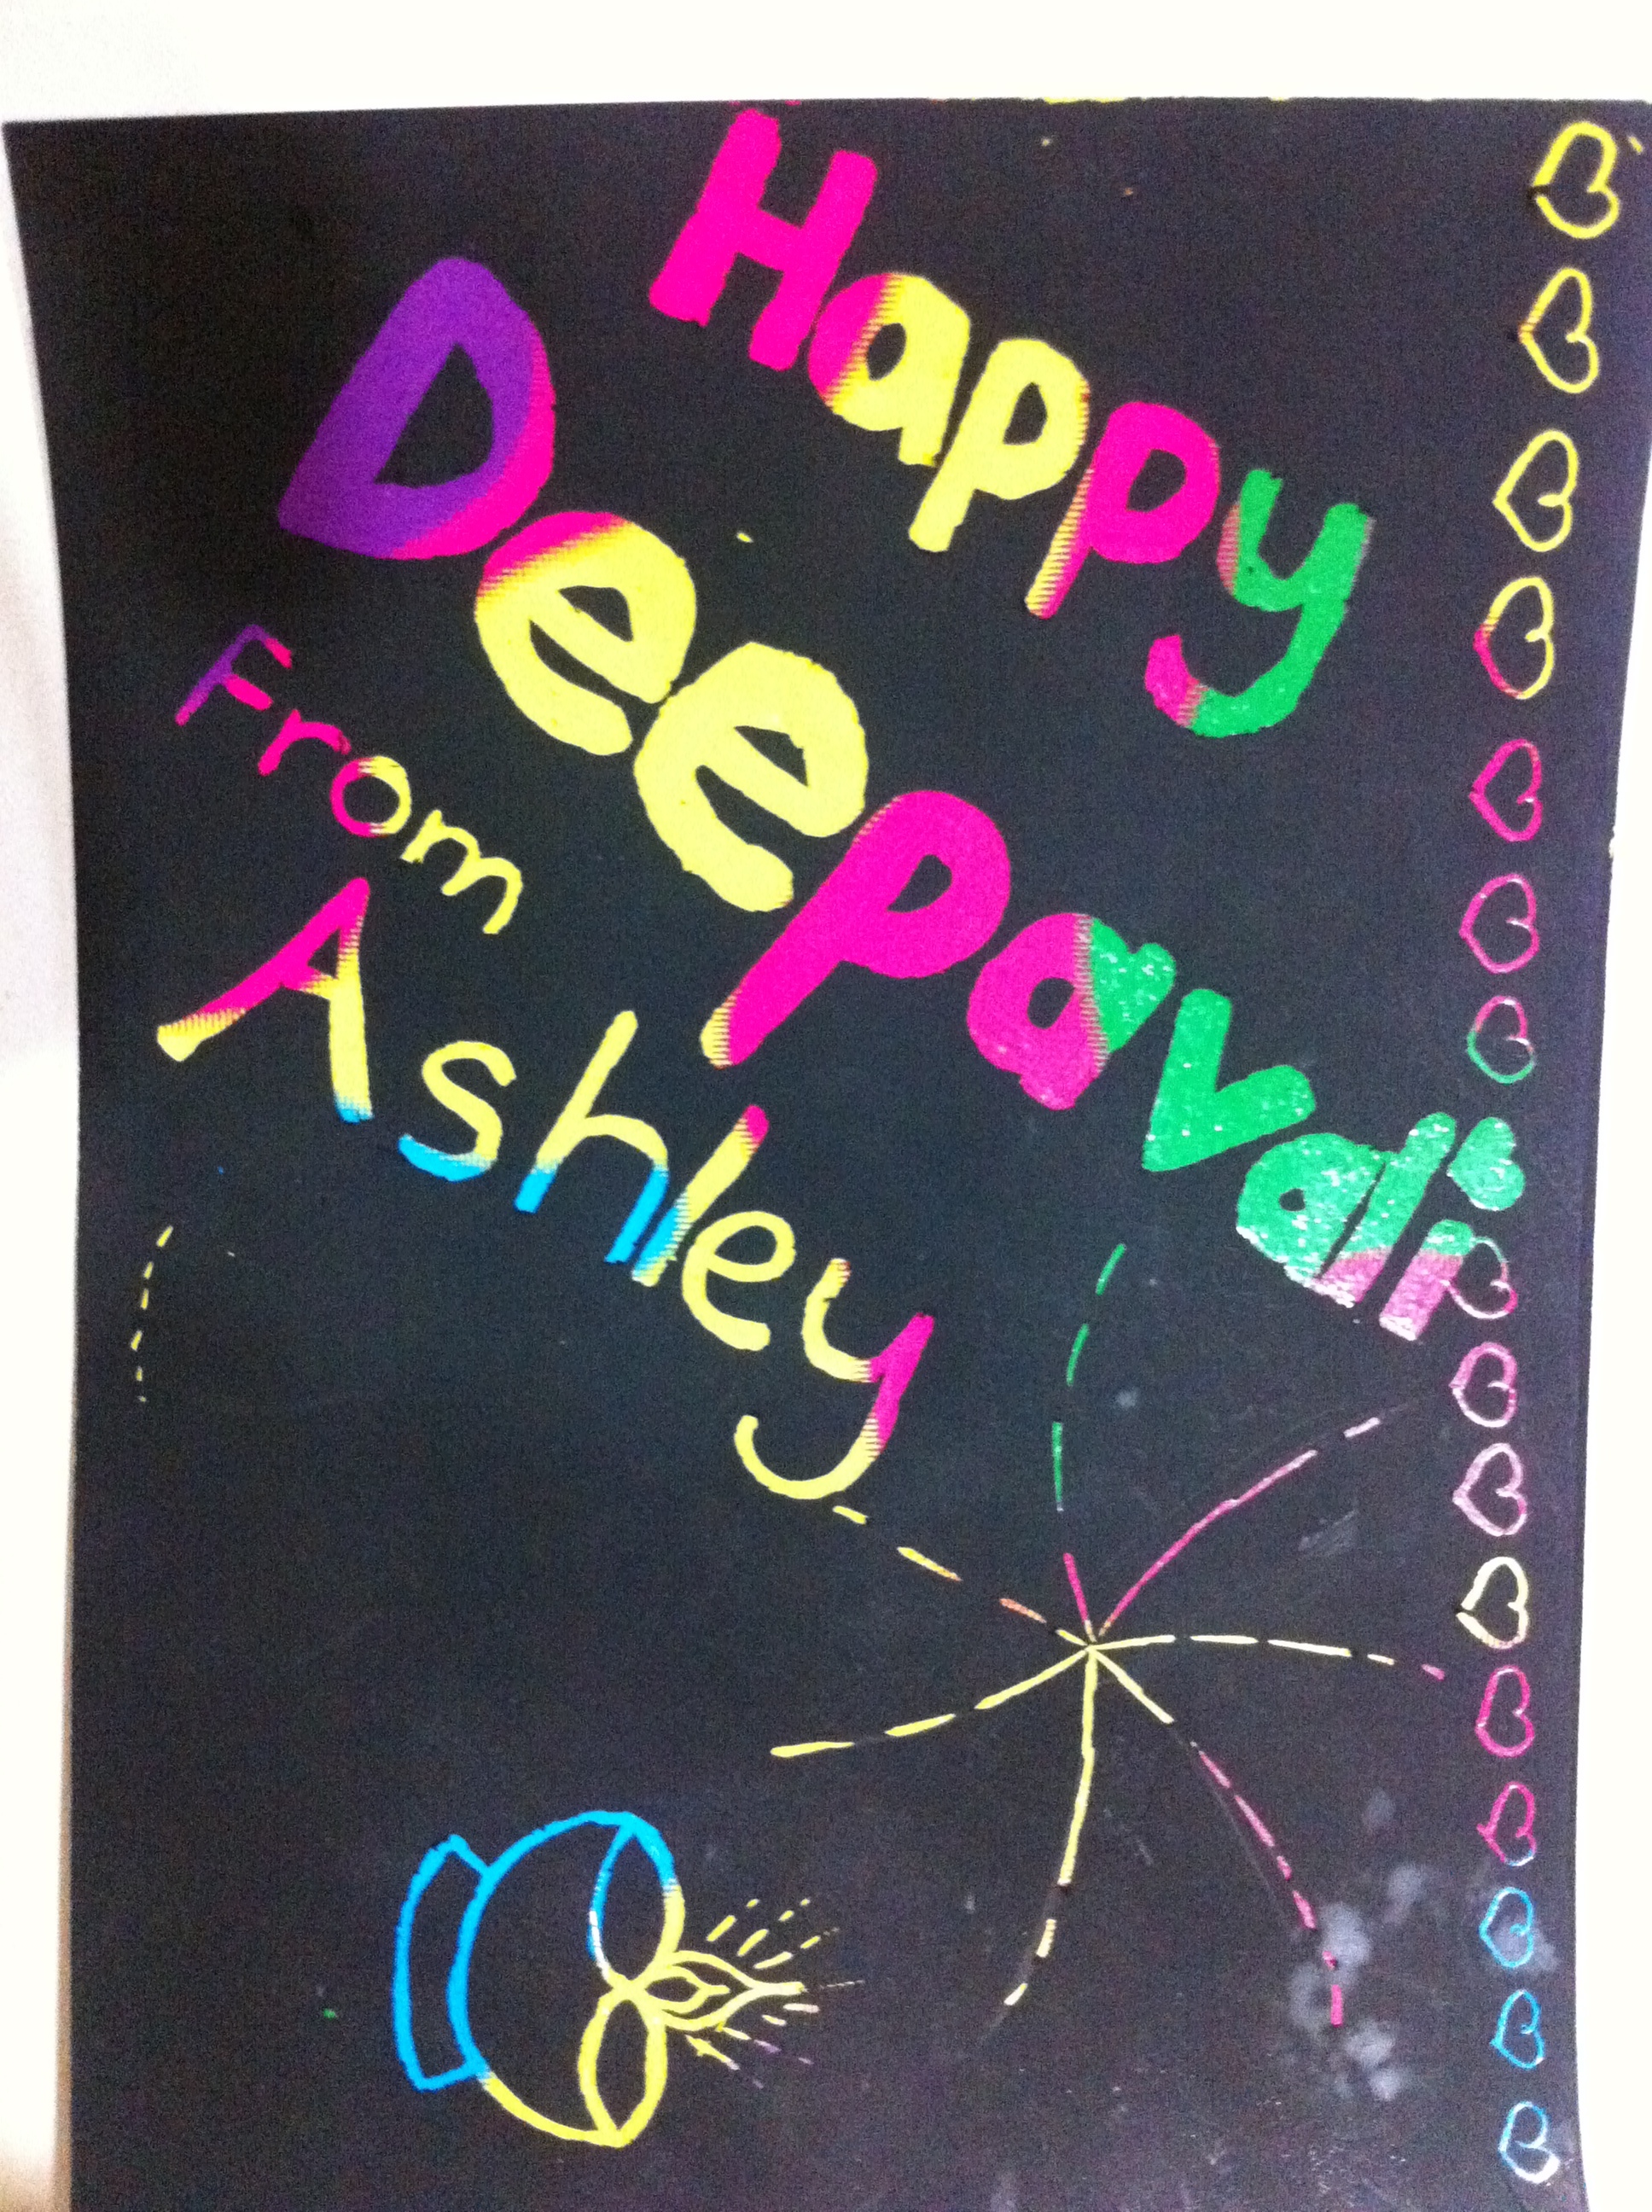 Happy
Deepavali
From
Ashley